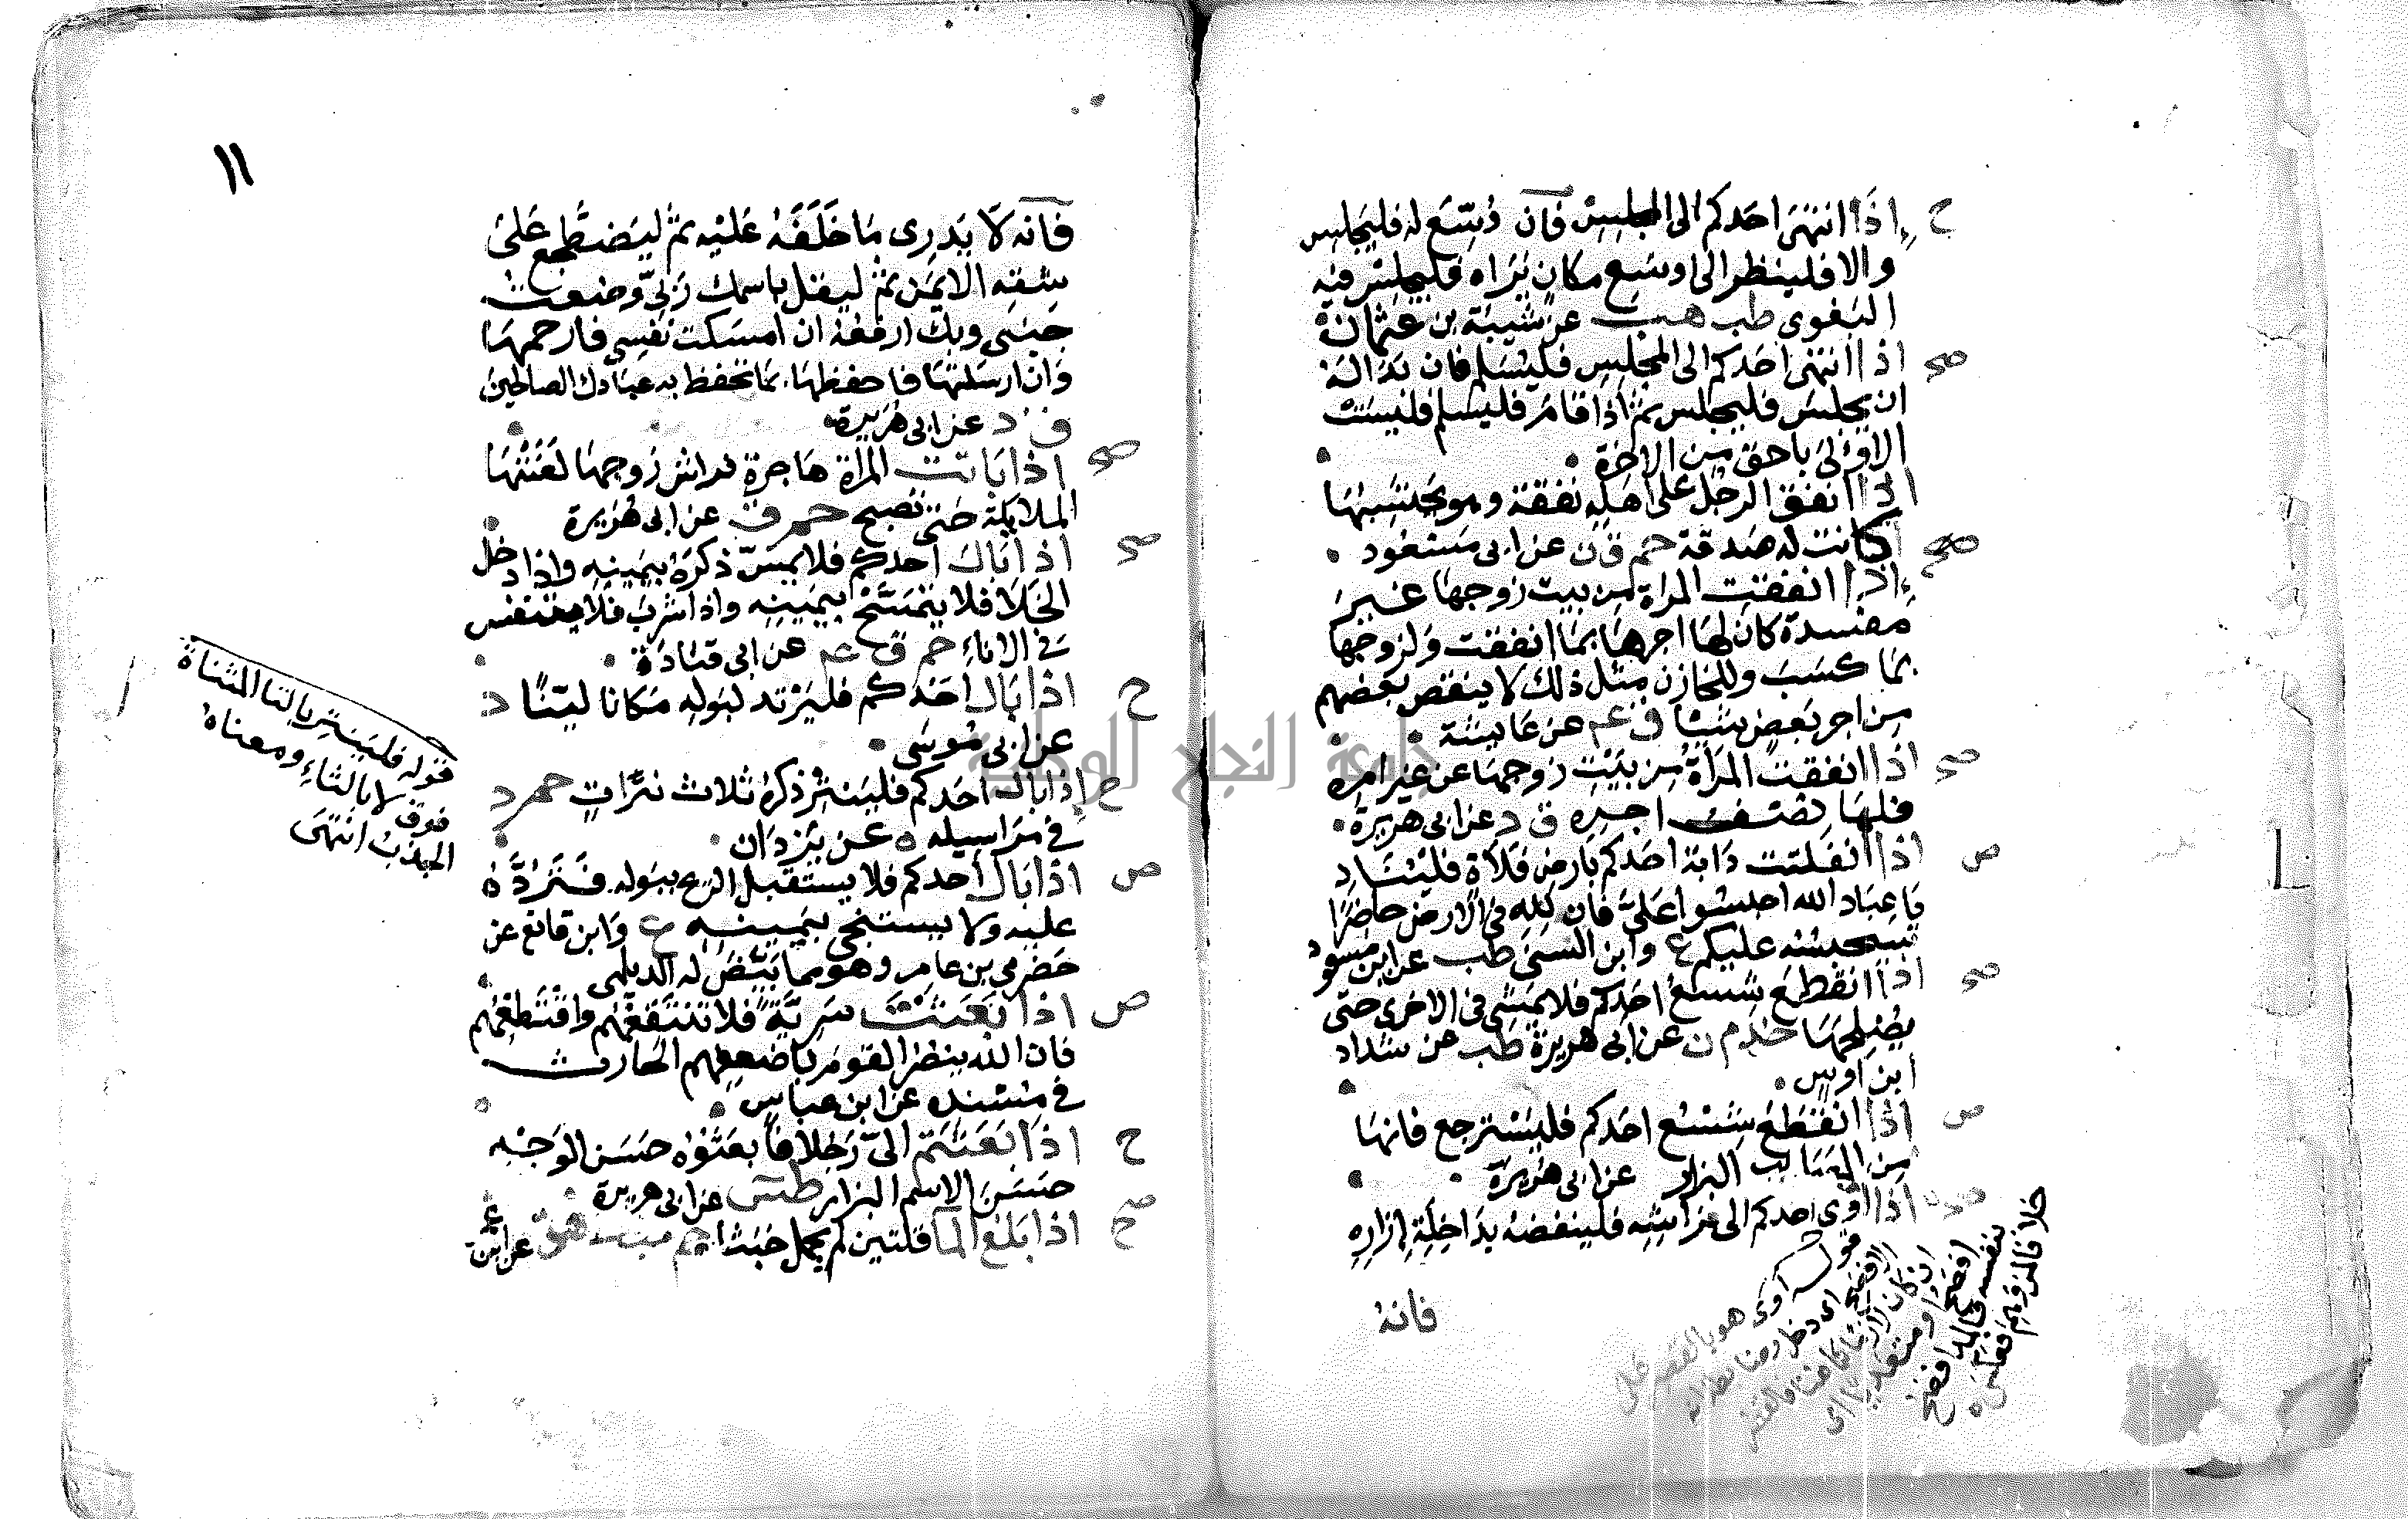 ح اذا انتهى احدكم الى المجلس فان وسع له فليجلس
والا فلينظر الى اوسع مكان يراه فليجلس فيه
البغوي طب هب عن شيبة بن عثمان
صح اذا انتهى احدكم الى المجلس فليسلم فان بدا له
ان يجلس فليجلس ثم اذا قام فليسلم فليست
الاولى باحق من الاخرة
اذا انفق الرجل على اهله نفقة وهو يحتسبها
صح كانت له صدقة حم ق ن عن ابي مسعود
اذا انفقت المراة من بيت زوجها غير
مفسدة كان لها اجرها بما انفقت ولزوجها
بما كسب وللخازن مثل ذلك لا ينقص بعضهم
من اجر بعض شيا ق عم عن عايشة
صح اذا انفقت المراة من بيت زوجها عن غير امره
فلها نصف اجره ق د عن ابي هريرة
ض اذا انفلتت دابة احدكم بارض فلاة فليناد
يا عباد الله احبسوا علي فان لله في الارض حاضرا
سيحبسه عليكم ع وابن السني طب عن ابن مسعود
صح اذا انقطع شسع احدكم فلا يمش في الاخرى حتى
يصلحها خد م ن عن ابي هريرة طب عن شداد
ابن اوس
ض اذا انقطع شسع احدكم فليسترجع فانها
من المصايب البزار عن ابي هريرة
صح اذا اوى احدكم الى فراشه فلينفضه بداخلة ازاره
فانه
اوى هو بالقصر على
١١
فانه لا يدري ما خلفه عليه ثم ليضطجع على
شقه الايمن ثم ليقل باسمك ربي وضعت
جنبي وبك ارفعه ان امسكت نفسي فارحمها
وان ارسلتها فاحفظها بما تحفظ به عبادك الصالحين
ق د عن ابي هريرة
صح اذا باتت المراة هاجرة فراش زوجها لعنتها
الملايكة حتى تصبح حم ق عن ابي هريرة
صح اذا بال احدكم فلا يمس ذكره بيمينه واذا دخل
الخلا فلا يتمسح بيمينه واذا شرب فلا يتنفس
في الاناء حم ق عم عن ابي قتادة
ح اذا بال احدكم فليرتد لبوله مكانا لينا د
عن ابي موسى
ح اذا بال احدكم فلينتر ذكره ثلاث نترات حم د
في مراسيله ه عن يزداد
ض اذا بال احدكم فلا يستقبل الريح ببوله فترده
عليه ولا يستنجي بيمينه ع وابن قانع عن
حضرمي بن عامر وهو مما بيض له الديلمي
ض اذا بعثت سرية فلا تنتقهم واقتطعهم
فان الله ينظر القوم باضعفهم الحارث
في مسنده عن ابن عباس
ح اذا بعثتم الي رجلا فابعثوه حسن الوجه
حسن الاسم البزار طس عن ابي هريرة
صح اذا بلغ الما قلتين لم يحمل خبثا حم حب قط هق عن ابن
عم
قوله فلينتر بالتا المثناة
فوق لا بالثاء ومعناه
الجذب انتهى
جامعة النجاح الوطنية